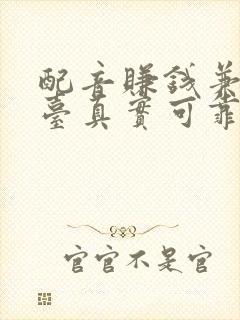 配音賺錢兼
臺真實可靠
官官不是官